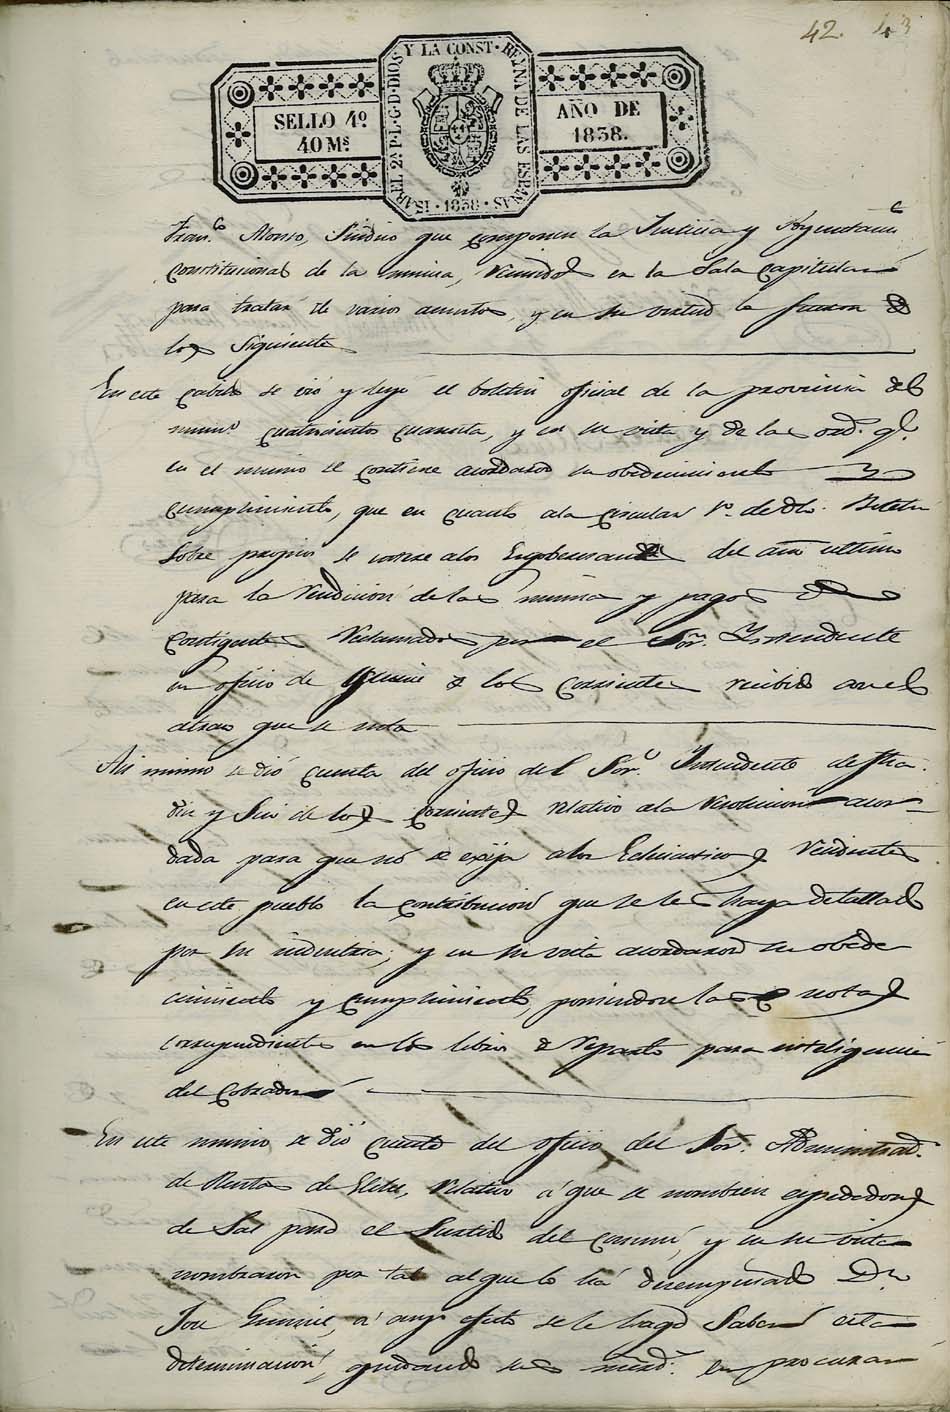 42. 43
ISABEL 2ª P. L. G. D. DIOS Y LA CONST. REINA DE LAS ESPAÑAS · 1838 ·
SELLO 4º
40 Mˢ.
AÑO DE
1838.
Franᶜᵒ Alonso, Sindico que componen la Justicia y Ayuntamᵗᵒ
Constitucional de la misma, reunidos en la Sala Capitular
para tratar de varios asuntos, y en su virtud lo hicieron de
los siguientes
En este cabildo se vió y leyó el boletin oficial de la provincia del
numº cuatrocientos cuarenta, y en su vista y de las ordˢ. qᵉ.
en el mismo se contiene acordaron su obedecimiento y
cumplimiento, que en cuanto ala circular 1ª. de dho. Boletin
sobre propios se
del año ultimo
para la rendicion de las mismas y pagos de
contigentes reclamados por el Sor. Yntendente
en oficio de quince de los corrientes recibido
atras que se nota
Asi mismo se dió cuenta del oficio del Sor. Yntendente de fha.
diez y seis de los corrientes relativo ala resolucion acor-
dada para que nó se exija alos Eclesiasticos residentes
en este pueblo la contribucion que se les haya detallado
por su industria; y en su vista acordaron su obede-
cimiento y cumplimiento, poniendose las notas
correspondientes en los libros de reparto para inteligencia
del Cobrador
En este mismo se dió cuenta del oficio del Sor. Administradʳ.
de Rentas de Elche, relativo á que se nombren espendedores
de Sal para el surtido del comun, y en su vista
nombraron por tal al que lo há desempeñado Dn.
Jose , á cuyo efecto se le haga saber esta
determinacion, quedando sus mercdˢ. en procurar